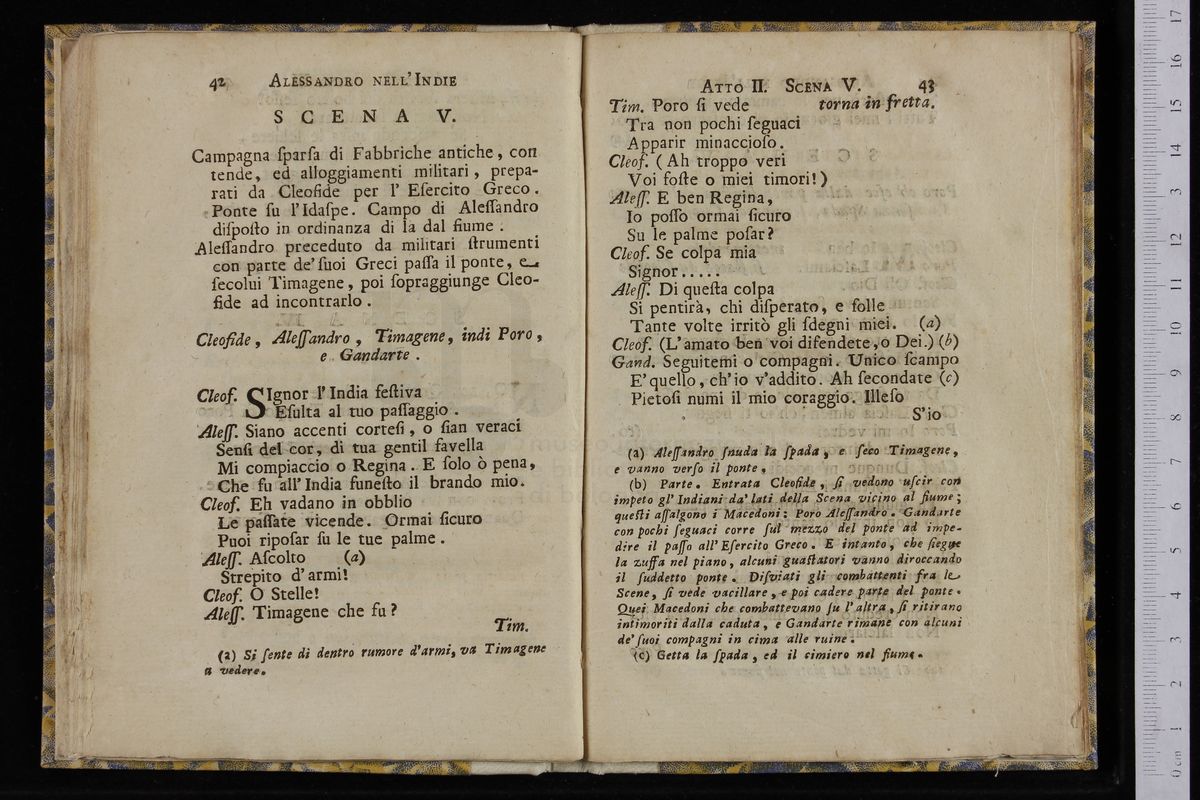 42 ALESSANDRO NELL'INDIE
SCENA V.
Campagna ſparſa di Fabbriche antiche, con
tende, ed alloggiamenti militari, prepa-
rati da Cleofide per l' Eſercito Greco.
Ponte ſu l'Idaſpe. Campo di Aleſſandro
diſpoſto in ordinanza di la dal fiume.
Aleſſandro preceduto da militari ſtrumenti
con parte de'ſuoi Greci paſſa il ponte, e
ſecolui Timagene, poi ſopraggiunge Cleo-
fide ad incontrarlo.
Cleofide, Aleſſandro, Timagene, indi Poro,
e Gandarte.
Cleof. SIgnor l'India feſtiva
Eſulta al tuo paſſaggio.
Aleſſ. Siano accenti corteſi, o ſian veraci
Senſi del cor, di tua gentil favella
Mi compiaccio o Regina. E ſolo ò pena,
Che fu all'India funeſto il brando mio.
Cleof. Eh vadano in obblio
Le paſſate vicende. Ormai ſicuro
Puoi ripoſar ſu le tue palme.
Aleſſ. Aſcolto (a)
Strepito d'armi!
Cleof. O Stelle!
Aleſſ. Timagene che fu?
Tim.
(a) Si ſente di dentro rumore d'armi, va Timagene
a vedere.
ATTO II. SCENA V. 43
Tim. Poro ſi vede torna in fretta.
Tra non pochi ſeguaci
Apparir minaccioſo.
Cleof. (Ah troppo veri
Voi foſte o miei timori!)
Aleſſ. E ben Regina,
Io poſſo ormai ſicuro
Su le palme poſar?
Cleof. Se colpa mia
Signor.....
Aleſſ. Di queſta colpa
Si pentirà, chi diſperato, e folle
Tante volte irritò gli ſdegni miei. (a)
Cleof. (L'amato ben voi difendete, o Dei.) (b)
Gand. Seguitemi o compagni. Unico ſcampo
E' quello, ch'io v'addito. Ah ſecondate (c)
Pietoſi numi il mio coraggio. Illeſo
S'io
(a) Aleſſandro ſnuda la ſpada, e ſeco Timagene,
e vanno verſo il ponte,
(b) Parte. Entrata Cleofide, ſi vedono uſcir con
impeto gl'Indiani da' lati della Scena vicino al fiume;
queſti aſſalgono i Macedoni; Poro Aleſſandro. Gandarte
con pochi ſeguaci corre ſul mezzo del ponte ad impe-
dire il paſſo all' Eſercito Greco. E intanto, che ſiegue
la zuffa nel piano, alcuni guaſtatori vanno diroccando
il ſuddetto ponte. Diſviati gli combattenti fra le
Scene, ſi vede vacillare, e poi cadere parte del ponte.
Quei Macedoni che combattevano ſu l'altra, ſi ritirano
intimoriti dalla caduta, e Gandarte rimane con alcuni
de' ſuoi compagni in cima alle ruine.
(c) Getta la ſpada, ed il cimiero nel fiume.
0 cm 1 2 3 4 5 6 7 8 9 10 11 12 13 14 15 16 17